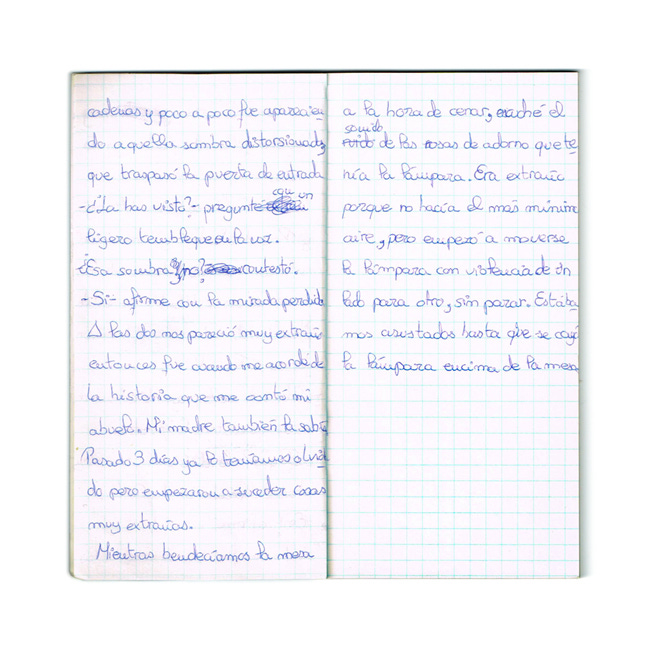 cadenas y poco a poco fue aparecien
do aquella sombra distorsionada,
que traspasó la puerta de entrada
-¿La has visto?- pregunté con un
ligero tembleque en la voz.
¿Esa sombra, no? contestó.
-Si- afirme con la mirada perdida
A las dos nos pareció muy extraño
entonces fue cuando me acordé de
la historia que me contó mi
abuela. Mi madre también la sabía
Pasado 3 días ya lo teníamos olvida
do pero empezaron a suceder cosas
muy extraños.
Mientras bendeciamos la mesa
a la hora de cenar, escuché el
sonido
ruido de las rosas de adorno que te
nía la lámpara. Era extraño
porque no hacía el mas mínimo
aire, pero empezó a moverse
la lámpara con violencia de un
lado para otro, sin parar. Estába
mos asustados hasta que se cayó
la lámpara encima de la mesa